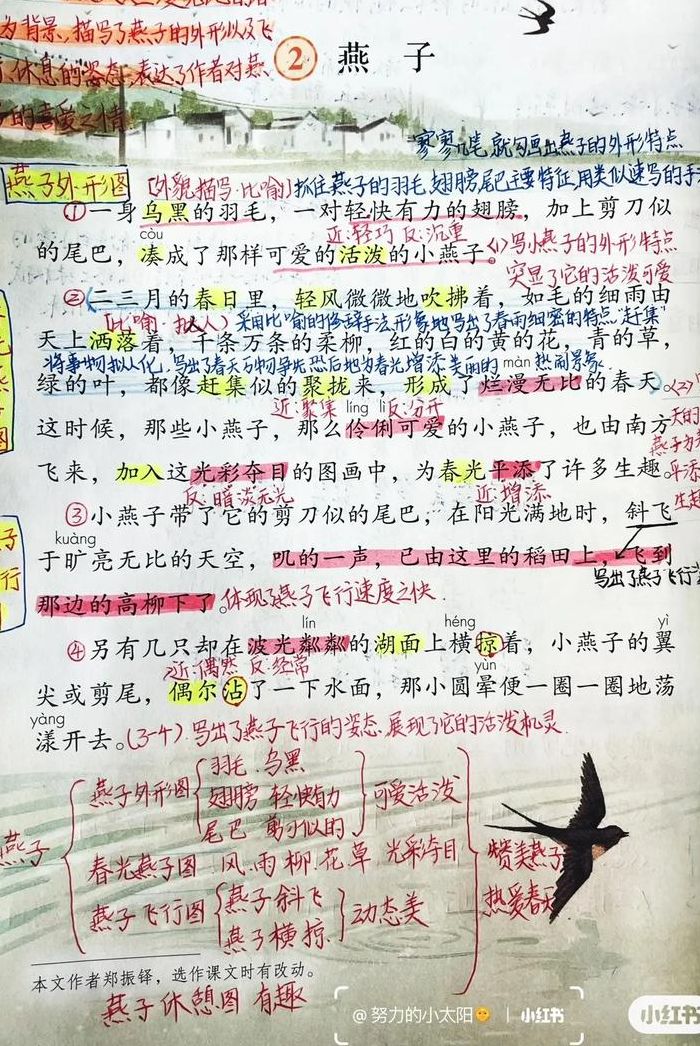 为背景,描写了燕子的外形以及飞
行、休息的姿态,表达了作者对燕
子的喜爱之情
2 燕子
寥寥几笔,就勾画出燕子的外形特点
燕子外形图
(外貌描写·比喻)抓住燕子的羽毛,翅膀,尾巴主要特征,用类似速写的手
①一身乌黑的羽毛,一对轻快有力的翅膀,加上剪刀似
近:轻巧 反:沉重
còu
的尾巴,凑成了那样可爱的活泼的小燕子。
(1)写小燕子的外形特点
突显了它的活泼可爱
②二三月的春日里,轻风微微地吹拂着,如毛的细雨由
(比喻·拟人)采用比喻的修辞手法形象地写出了春雨细密的特点"赶集"
天上洒落着,千条万条的柔柳,红的白的黄的花,青的草,
将事物拟人化,写出了春天万物争先恐后地为春光增添美丽的热闹景象
màn
绿的叶,都像赶集似的聚拢来,形成了烂漫无比的春天。(2)
近:聚集 líng lì 反:分开
这时候,那些小燕子,那么伶俐可爱的小燕子,也由南方
飞来,加入这光彩夺目的图画中,为春光平添了许多生趣。
反:暗淡无光 近:增添
③小燕子带了它的剪刀似的尾巴,在阳光满地时,斜飞
kuàng
于旷亮无比的天空,叽的一声,已由这里的稻田上,飞到
写出了燕子飞行
那边的高柳下了。体现了燕子飞行速度之快.
lín héng yì
④另有几只却在波光粼粼的湖面上横掠着,小燕子的翼
近:偶然 反:经常 yùn
尖或剪尾,偶尔沾了一下水面,那小圆晕便一圈一圈地荡
yàng
漾开去。(3-4).写出了燕子飞行的姿态.展现了它的活泼机灵.
燕子
燕子外形图
羽毛.乌黑
翅膀 轻快有力
尾巴 剪刀似的
可爱活泼
春光燕子图.风.雨.柳.花 草 光彩夺目
燕子飞行图
燕子斜飞
燕子横掠
动态美
赞美燕子
热爱春天
本文作者郑振铎,选作课文时有改动。
燕子休憩图 有趣
@努力的小太阳 | 小红书
小红书